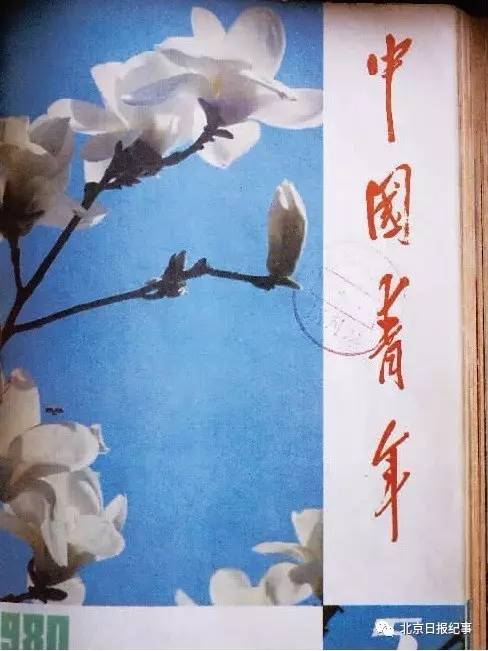 中國青年
1980
北京日报纪事